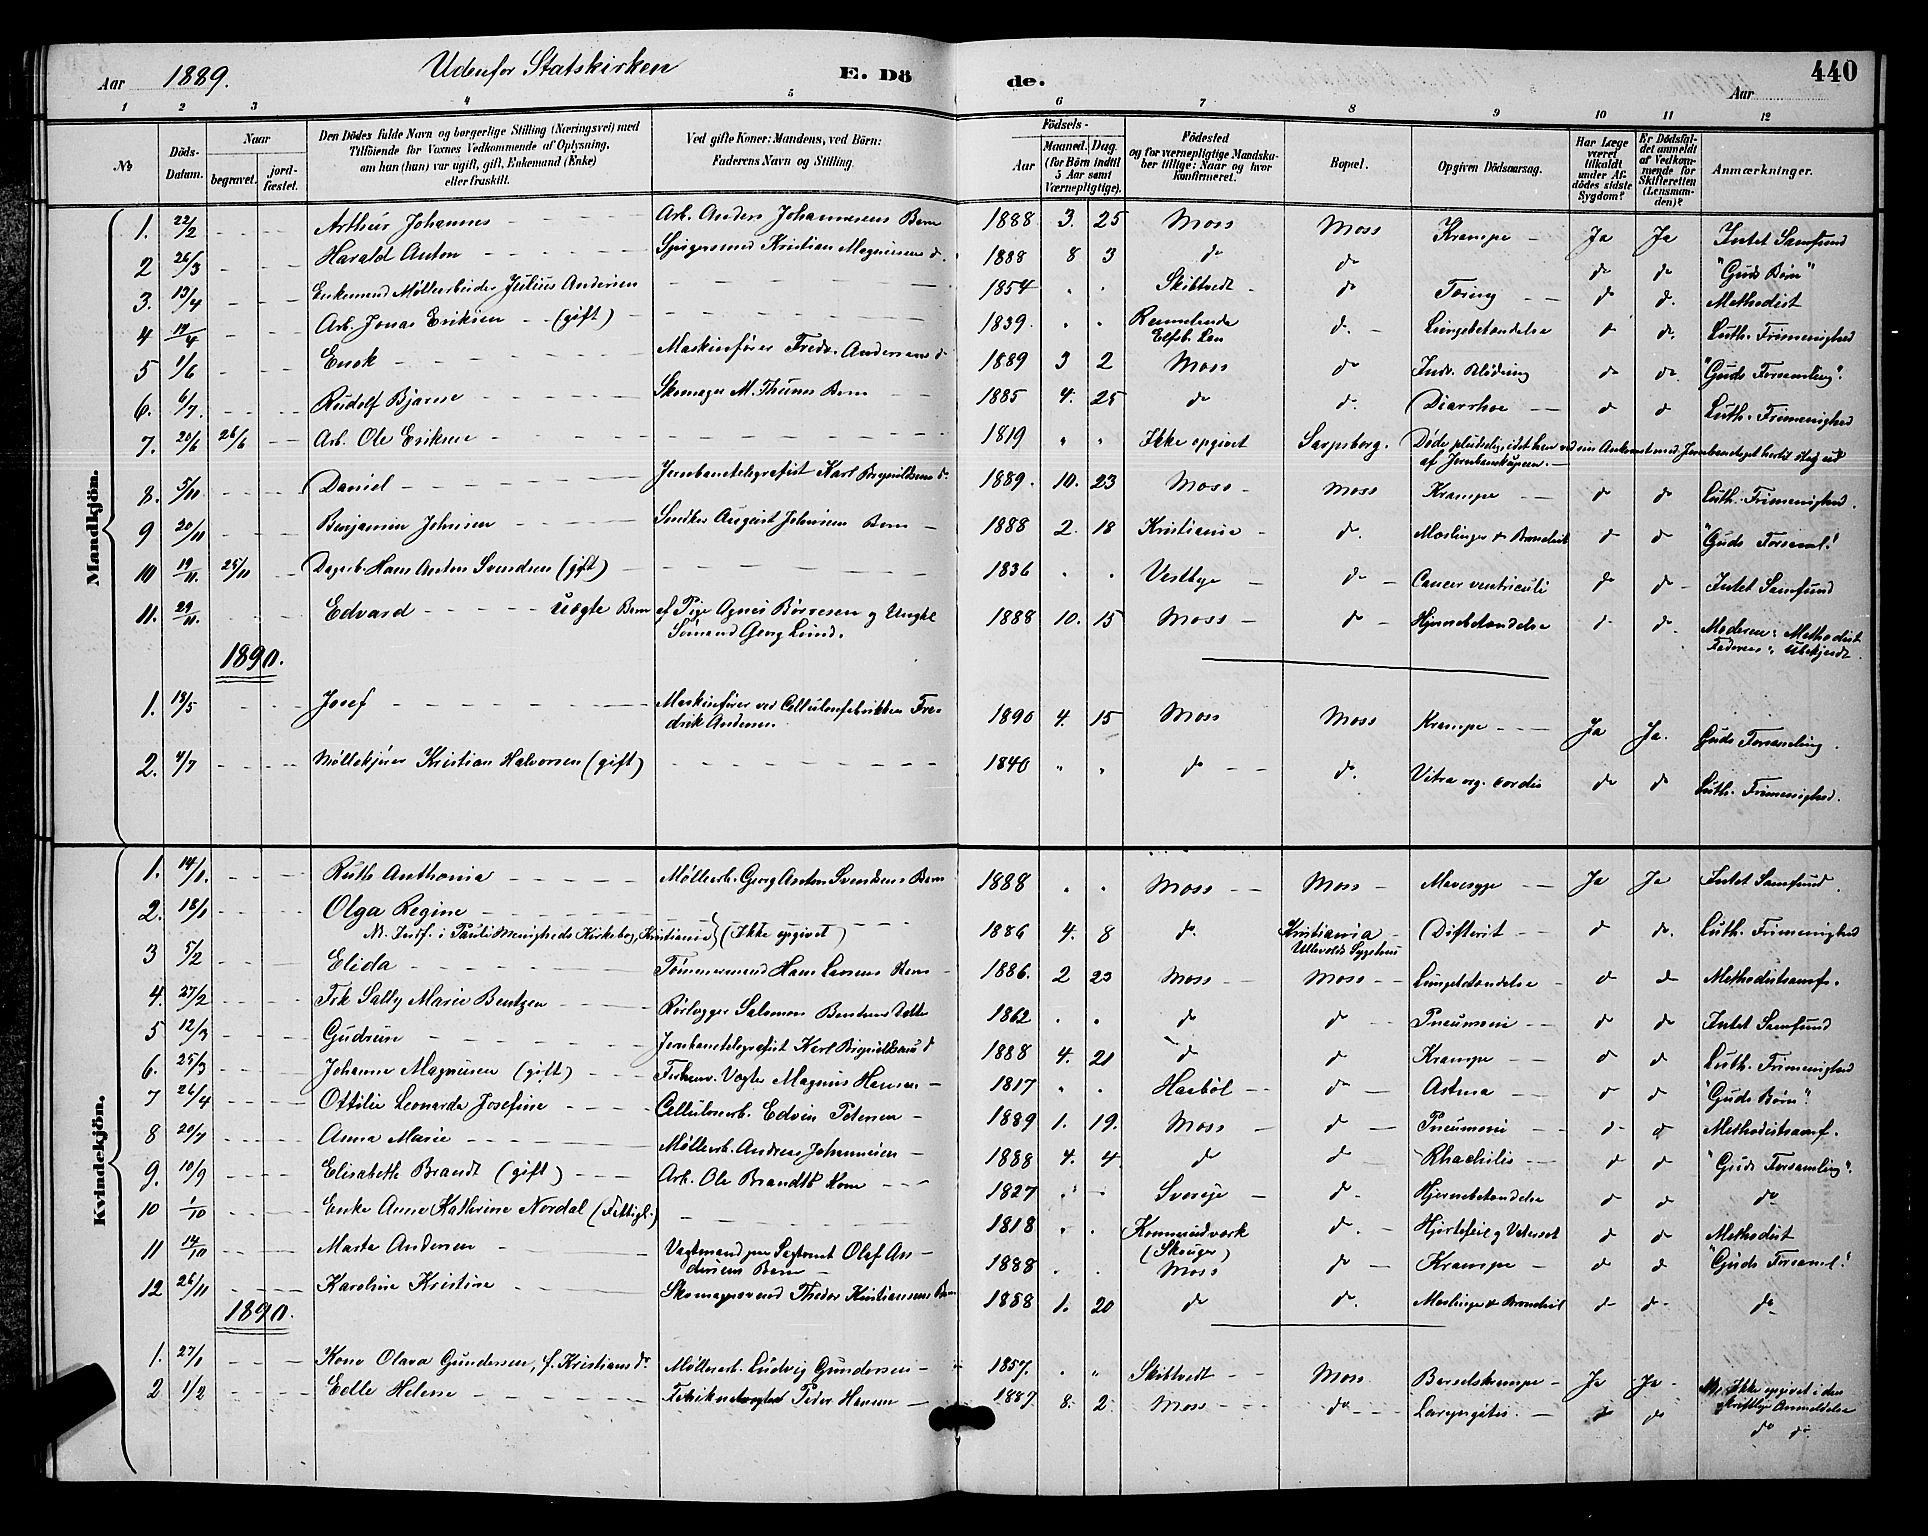 Aar 1889. Udenfor Statskirken E. Döde. Aar 440
1 2 3 4 5 6 7 8 9 10 11 12
No
Döds-Datum.
Naar
begravet.
jordfæstet.
Den Dödes fulde Navn og borgerlige Stilling (Næringsvei) med
Tilföiende for Voxnes Vedkommende af Oplysning,
om han (hun) var ugift, gift, Enkemand (Enke)
eller fraskilt.
Ved gifte Koner: Mandens, ved Börn:
Faderens Navn og Stilling.
Födsels-
Aar
Maaned. Dag.
(for Börn indtil
5 Aar samt
Værnepligtige).
Födested
og for værnepligtige Mandska-
ber tillige: Naar og hvor
konfirmeret.
Bopæl.
Opgiven Dödsaarsag.
Har Læge
været
tilkaldt
under Af-
dödes sidste
Sygdom?
Er Dödsfal-
det anmeldt
af Vedkom-
mende for
Skifteretten
(Lensman-
den)?
Anmærkninger.
Mandkjön.
1. 22/2 Arthur Johannes Arb. Anders Johannesens Barn 1888 3. 25 Moss Moss Krampe Ja Ja Intet Samfund
2 26/3 Harald Anton Kristian Magnusens d. 1888 8 3 do do do do "Guds Børn"
3. 13/4 Enkemand Møllearbeider Julius Andersen 1854 " " Skibtvedt do Tæring do d. Methodist
4 /4 Arb. Jonas Eriksen (gift) 1839. " " Elfsb. Len d. Lungebetændelse d. Luth. Frimenighed
5 1/6 Enok Maskinfører Fredr. Andersens d 1889 3 2 Moss do Indv. Blødning do do "Guds Forsamling".
6. 6/7. Rudolf Bjarne Skomager M. Thunes Barn 1885 4. 25 do d. Diarrhoe do do Luth. Frimenighed
7. 20/6 26/6 Arb. Ole Eriksen 1819 " " Ikke opgivet Sarpsborg. Døde pludselig, idet han ved sin Ankomst med Jernbanetoget hertil steg ud
af Jernbanekupeen.
8. 5/11 Daniel Jernbanetelegrafist Karl d. 1889. 10. 23 Moss Moss Krampe do do Luth. Frimenighed.
9 20/11 Benjamin Johnsen August Johnsens Barn 1888 2. 18 Kristiania d. Meslinger & Bronchit do do "Guds Forsaml."
10 19/11. 25/11 Dagarb. Hans Anton Svendsen (gift) 1836 " " Vestbye do Cancer ventriculi do do Intet Samfund
11. 29/11. Edvard uægte Barn af Pige Agnes Børresen og Ungkl
Sømand Georg Lund. 1888 10. 15 Moss do Hjernebetændelse do do. Moderen: Methodist
Faderen: Ubekjendt.
1890.
1. 18/5 Josef Maskinfører ved Cellulosefabrikken Fre-
drik Andersen. 1890 4. 15 Moss Moss Krampe Ja Ja. Guds Forsamling.
2. 4/7 Møllekjører Kristian Halvorsen (gift) 1840 " " do d. Vitia org. cordis do do Luth. Frimenighed.
Kvindekjön.
1. 14/1. Ruth Anthonia Møllearb. Georg Anton Svendsens Barn 1888 " " Moss Moss Mavesyge Ja Ja Intet Samfund.
2. 18/1 Olga Regine
M. Indf. i Pauli Menigheds Kirkebog, Kristiania (Ikke opgivet) 1886 4. 8 do. Kristiania
Ullevolds Sygehus Difterit do do. Luth. Frimenighed
3 5/2 Elida Tømmermand Hans Larsens Barn 1886. 2 23 Moss Moss Lungebetændelse do do Methodistsamf.
4. 27/2 Frk Sally Marie Bentzen Rørlægger Salomon Bentzens Datter 1862 " " do do Pneumoni do do Intet Samfund
5 12/3 Gudrun Jernbanetelegrafist Karl d 1888 4. 21 do do Krampe do do Luth. Frimenighed
6. 25/3 Johanne Magnusen (gift) Vogter Magnus Hansen 1817 " " Haabøl do Astma do do "Guds Børn".
7 26/4 Ottilie Leonarda Josefine Cellulosearb. Edvin Petersen 1889 1. 19. Moss do Pneumoni do do Methodistsamf.
8 20/7 Anna Marie Møllearb. Andreas Johannesen 1888 4. 4 do do Rhachitis do do "Guds Forsamling".
9. 10/9 Elisabeth Brandt (gift) Arb. Ole Brandts Kone 1827 " " Sverige d. Hjernebetændelse do do do
10 1/10 Enke Anne Kathrine Nordal (Fattigl.) 1818 " " (Skouger) d. Hjertefeil og Vatersot do do Methodist
11 14/10 Marta Andersen Vagtmand paa Olaf An-
dersens Barn 1888 " " Moss do Krampe do do "Guds Forsaml."
12 26/11 Karoline Kristine Thedor Kristiansens Barn 1888 1. 20 do d. Meslinger & Bronchit do do do
1890.
1. 27/1 Kone Olava Gundersen, f. Kristiansdr. Møllearb. Ludvig Gundersen 1857. " " Skibtvedt Moss Barselskrampe Ja Ja M. Ikke opgivet i den
skriftlige Anmeldelse
2 1/2 Edle Helene Peder Hansen 1887 8. 2 Moss do Laryngitis. do do do do.